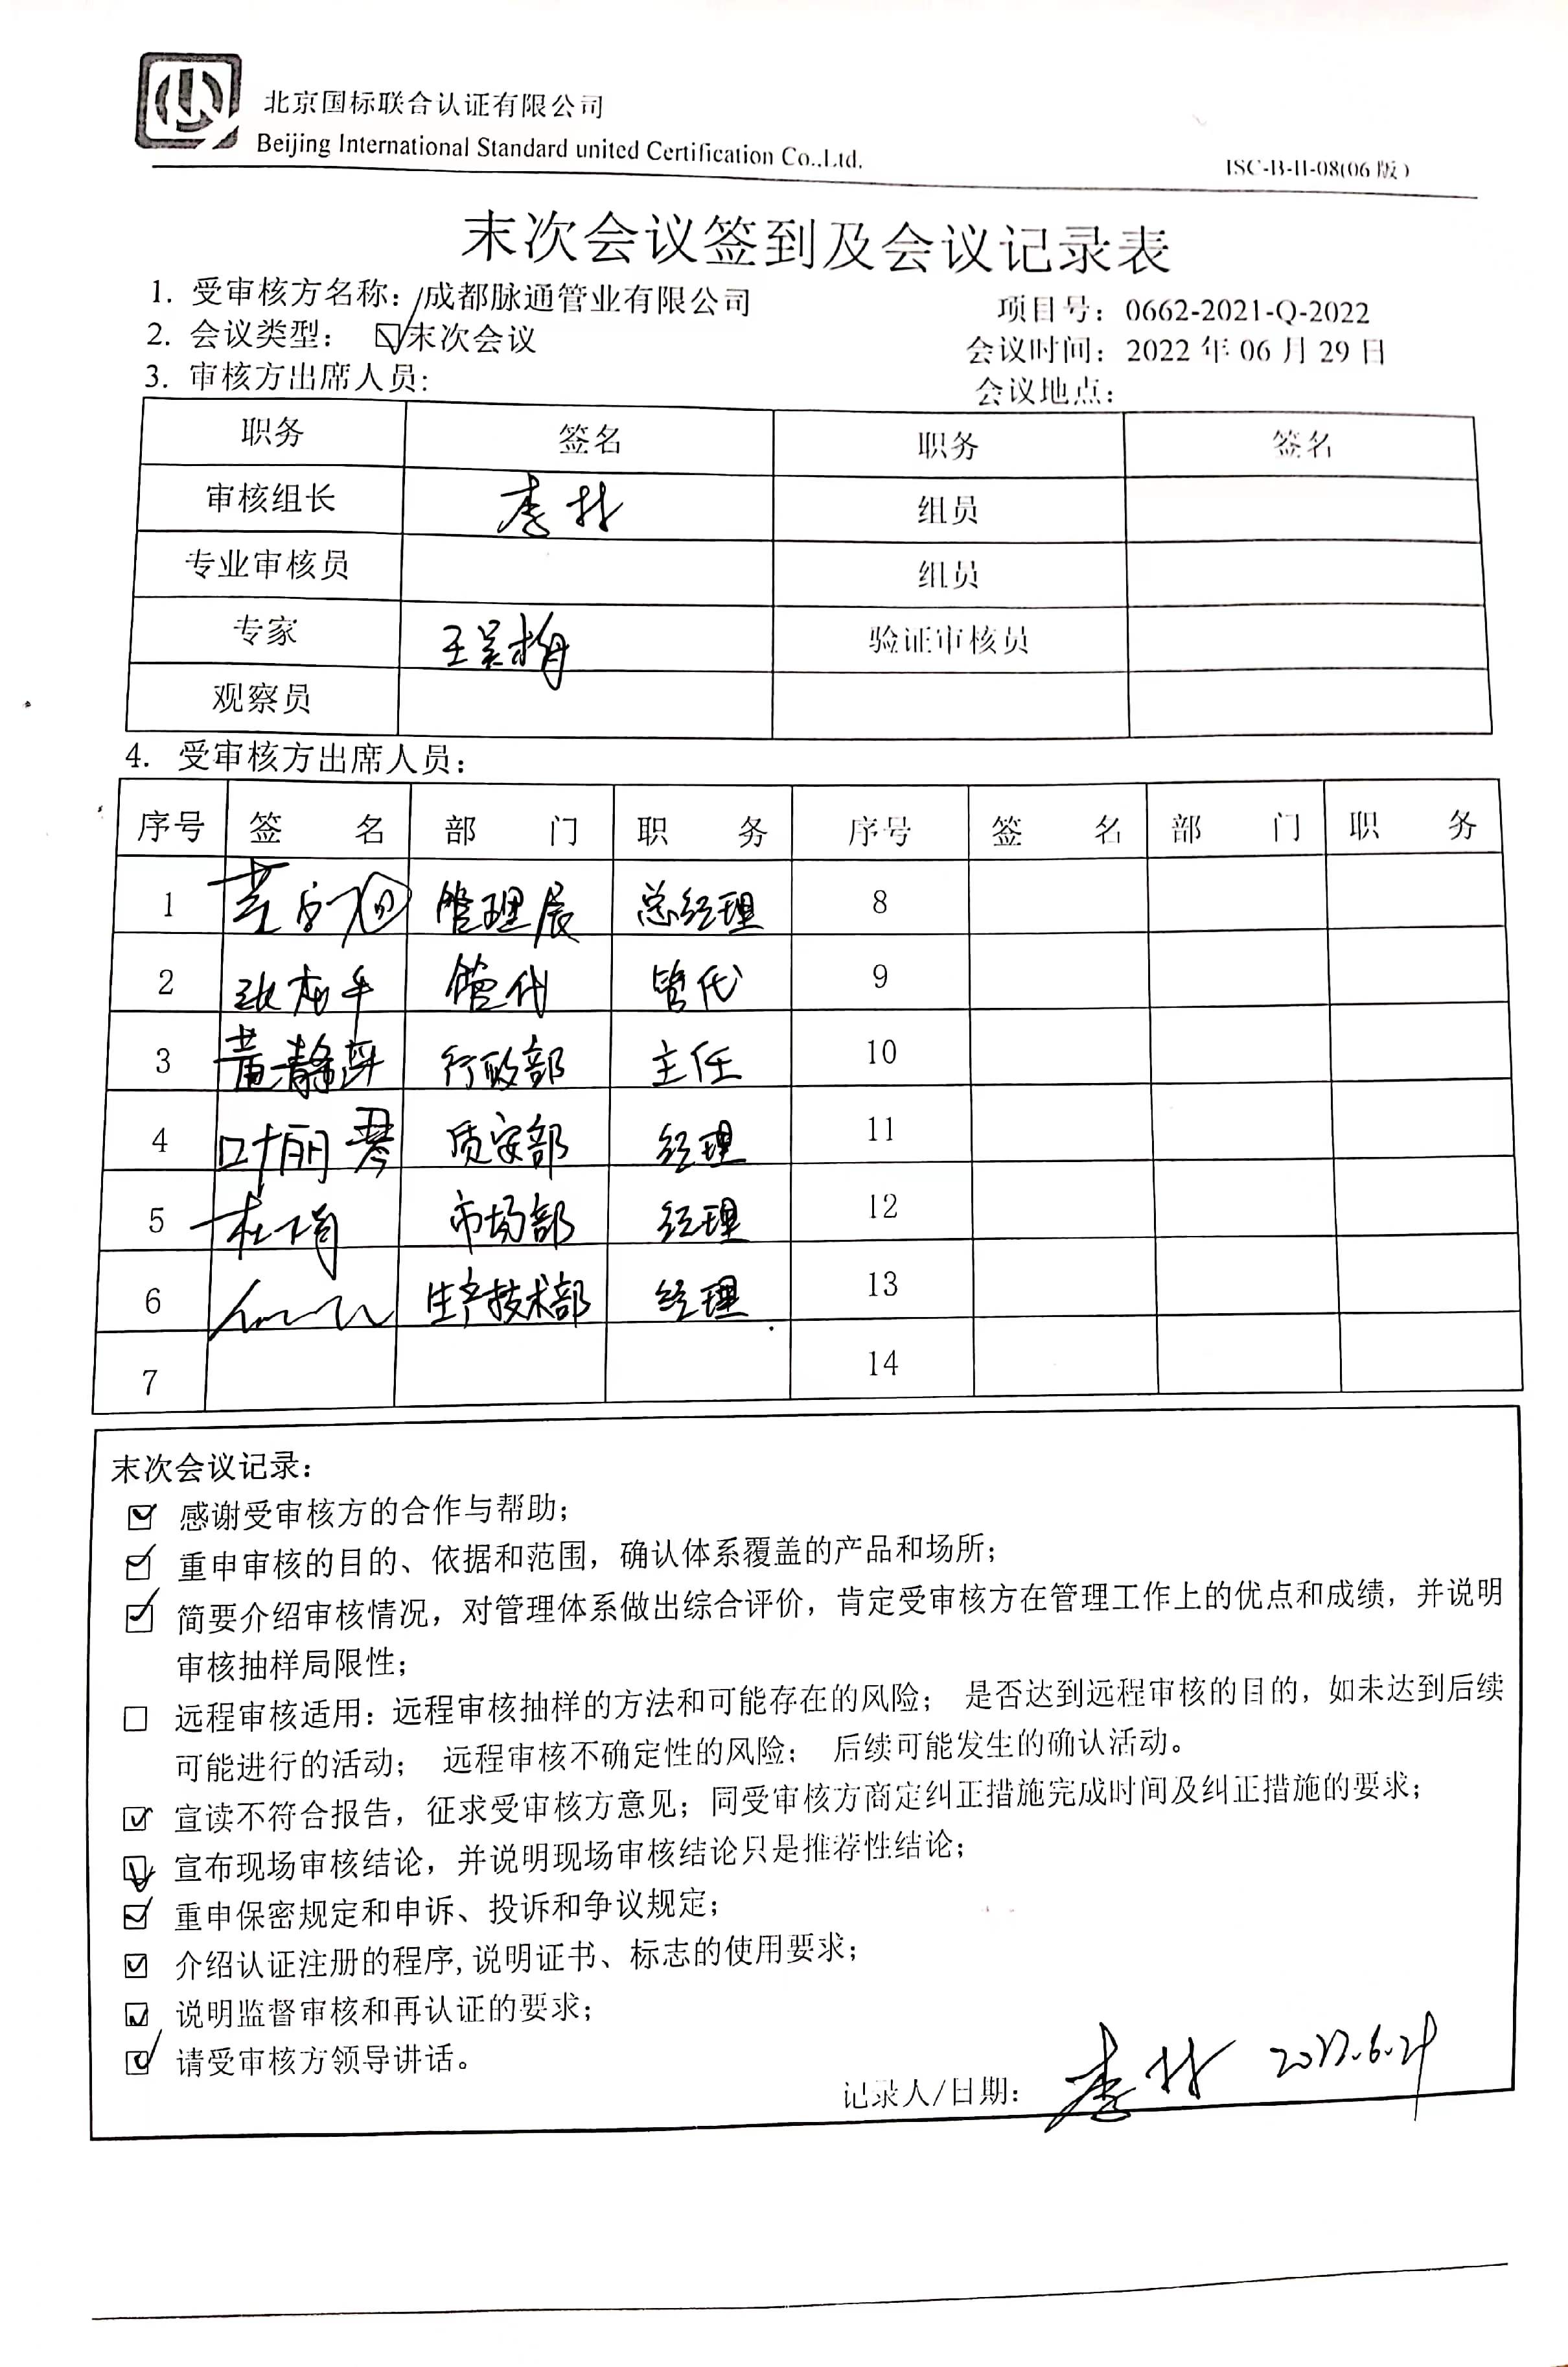 北京国标联合认证有限公司
Beijing International Standard united Certification Co.,Ltd.
ISC-B-II-08(06版)
末次会议签到及会议记录表
1. 受审核方名称：成都脉通管业有限公司 项目号：0662-2021-Q-2022
2. 会议类型： ☑末次会议 会议时间：2022年06月29日
3. 审核方出席人员: 会议地点：
职务 签名 职务 签名
审核组长 李林 组员
专业审核员 组员
专家 王吴梅 验证审核员
观察员
4. 受审核方出席人员：
序号 签 名 部 门 职 务 序号 签 名 部 门 职 务
1 管理层 总经理 8
2 管代 管代 9
3 黄静萍 行政部 主任 10
4 叶丽琴 质安部 经理 11
5 杜娟 市场部 经理 12
6 生产技术部 经理 13
7 14
末次会议记录：
☑ 感谢受审核方的合作与帮助；
☑ 重申审核的目的、依据和范围，确认体系覆盖的产品和场所；
☑ 简要介绍审核情况，对管理体系做出综合评价，肯定受审核方在管理工作上的优点和成绩，并说明
审核抽样局限性；
□ 远程审核适用：远程审核抽样的方法和可能存在的风险； 是否达到远程审核的目的，如未达到后续
可能进行的活动； 远程审核不确定性的风险； 后续可能发生的确认活动。
☑ 宣读不符合报告，征求受审核方意见；同受审核方商定纠正措施完成时间及纠正措施的要求；
☑ 宣布现场审核结论，并说明现场审核结论只是推荐性结论；
☑ 重申保密规定和申诉、投诉和争议规定；
☑ 介绍认证注册的程序,说明证书、标志的使用要求；
☑ 说明监督审核和再认证的要求；
☑ 请受审核方领导讲话。
记录人/日期： 李林 2022.6.29